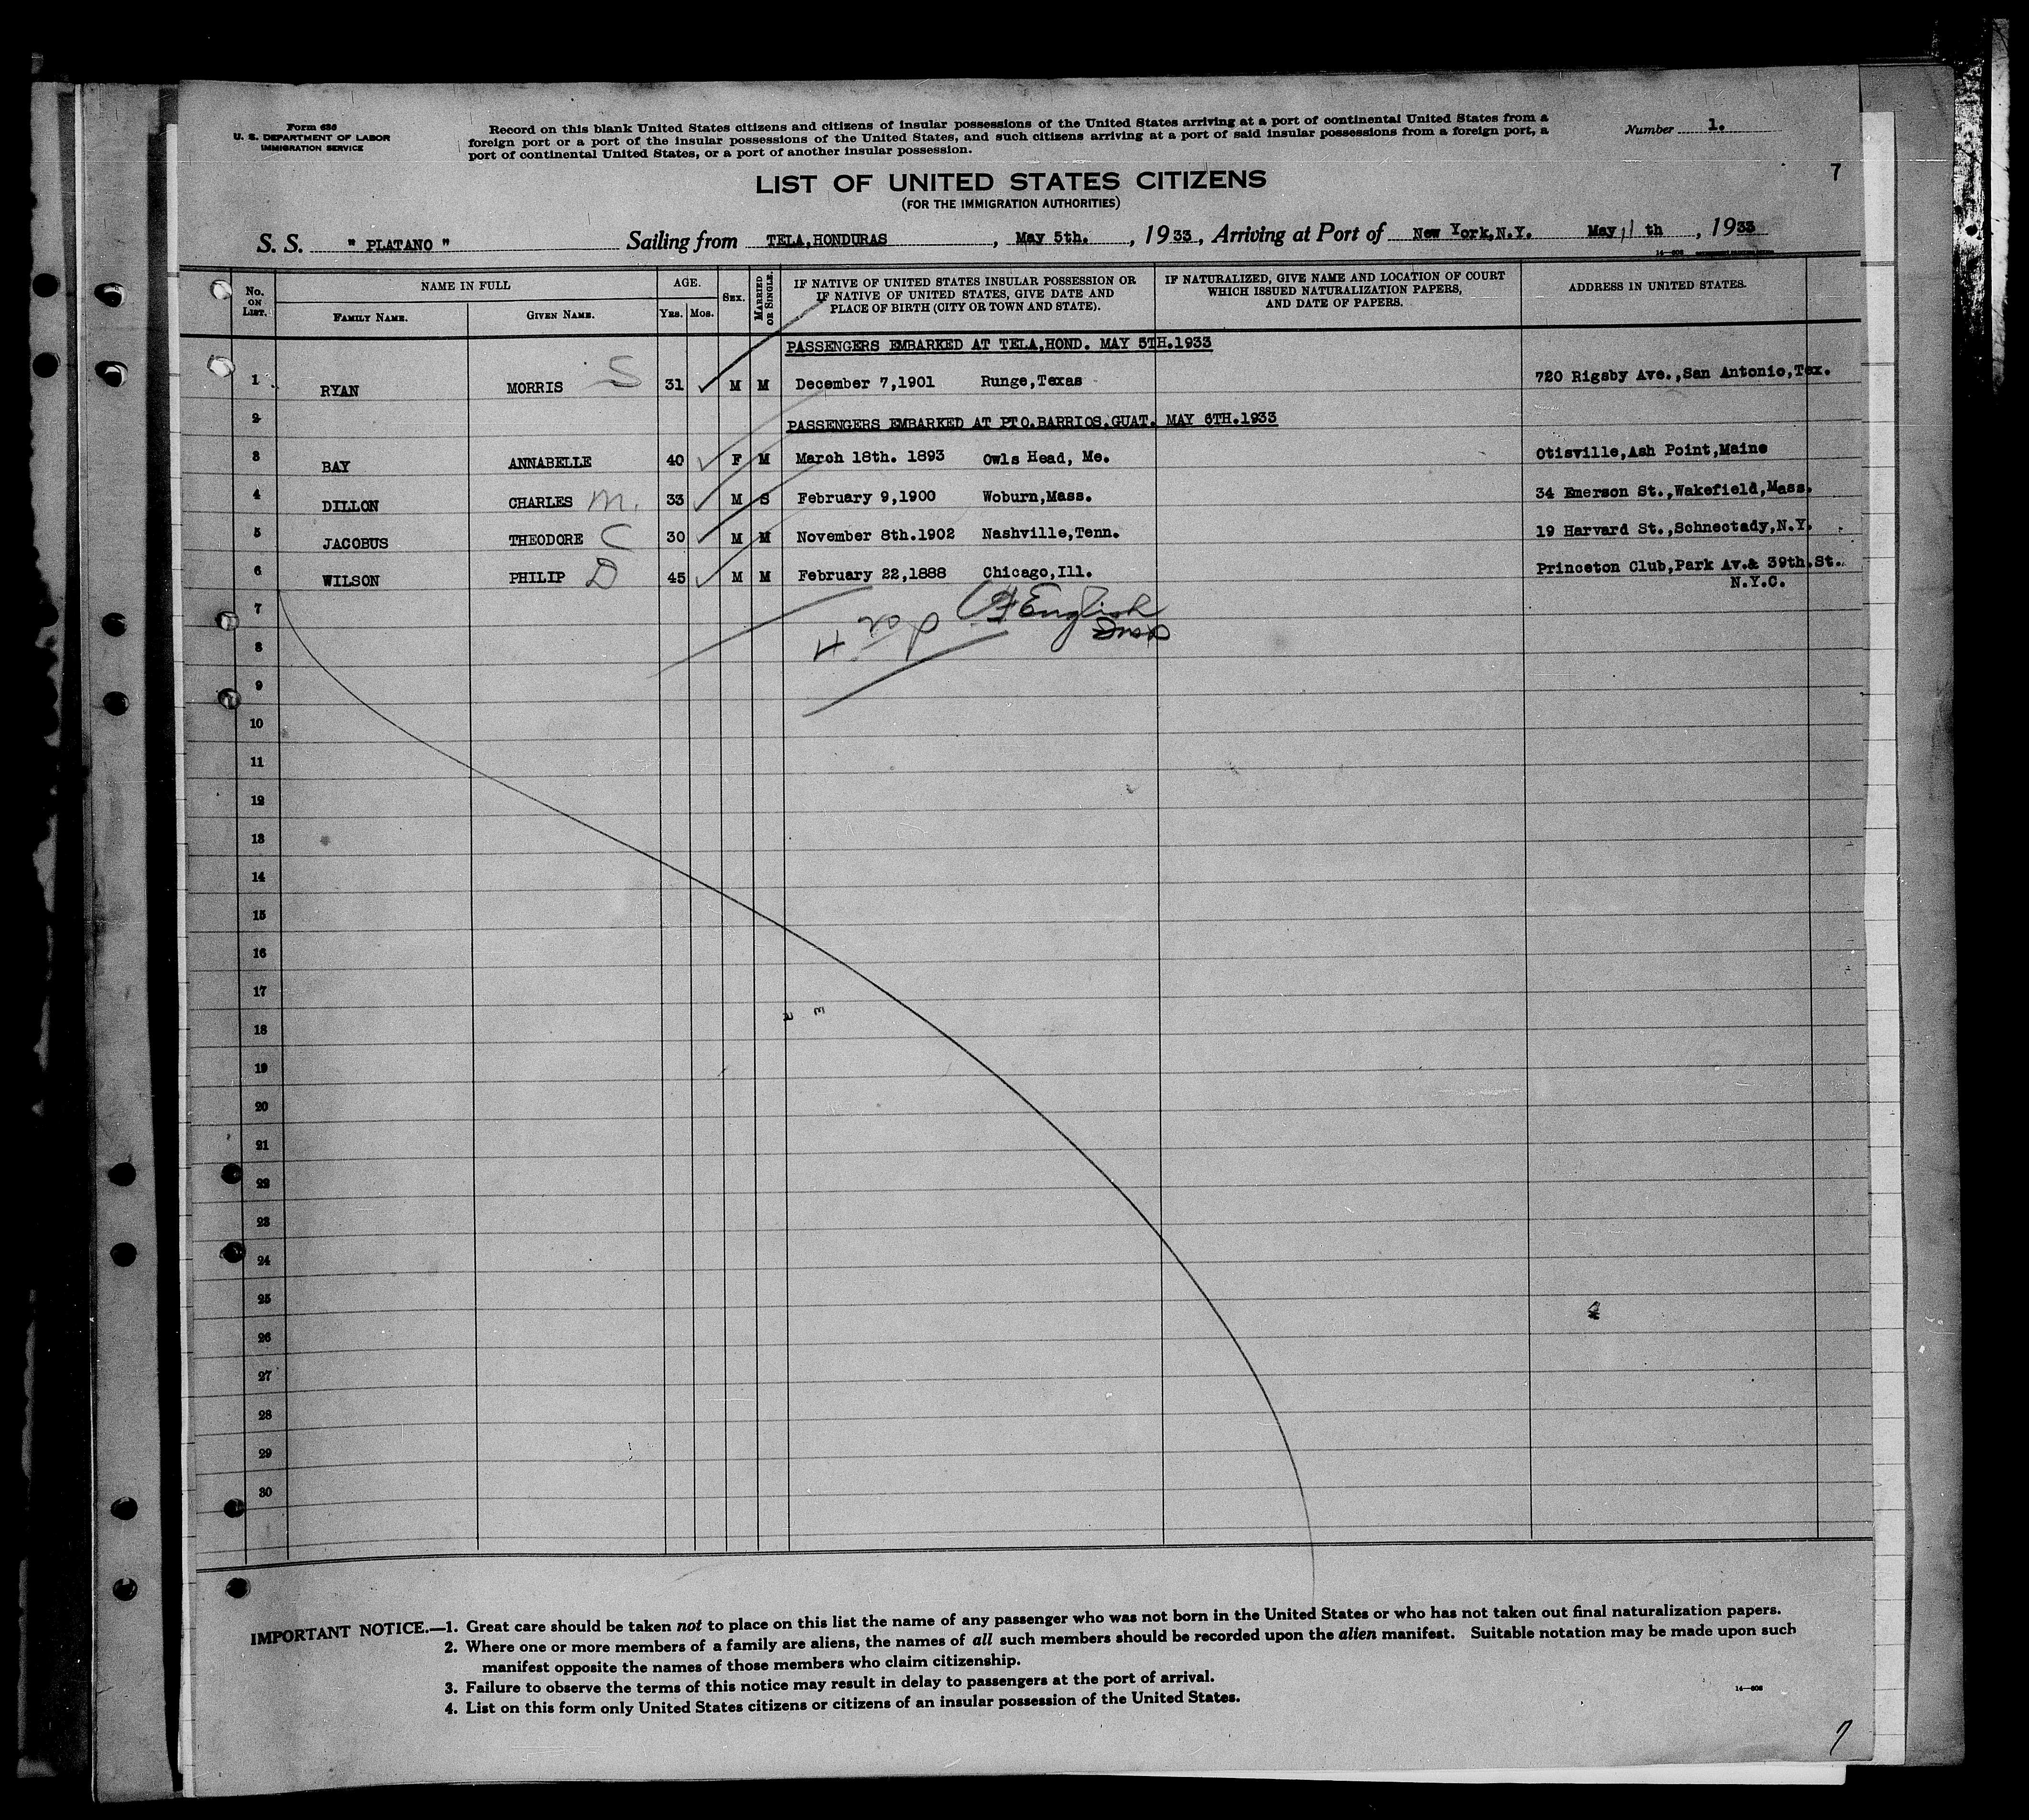 Form 686
U. S. DEPARTMENT OF LABOR
IMMIGRATION SERVICE
Record on this blank United States citizens and citizens of insular possessions of the United States arriving at a port of continental United States from a
foreign port or a port of the insular possessions of the United States, and such citizens arriving at a port of said insular possessions from a foreign port, a
port of continental United States, or a port of another insular possession.
Number 1.
7
LIST OF UNITED STATES CITIZENS
(FOR THE IMMIGRATION AUTHORITIES)
S. S. " PLATANO " Sailing from TELA,HONDURAS , May 5th. , 1933 , Arriving at Port of New York,N.Y. May 11 th , 1933
14—608
No. ON LIST. NAME IN FULL AGE. SEX. MARRIED OR SINGLE. IF NATIVE OF UNITED STATES INSULAR POSSESSION OR IF NATIVE OF UNITED STATES, GIVE DATE AND PLACE OF BIRTH (CITY OR TOWN AND STATE). IF NATURALIZED, GIVE NAME AND LOCATION OF COURT WHICH ISSUED NATURALIZATION PAPERS, AND DATE OF PAPERS. ADDRESS IN UNITED STATES.
FAMILY NAME. GIVEN NAME. YRS. MOS.
PASSENGERS EMBARKED AT TELA,HOND. MAY 5TH.1933
1 RYAN MORRIS S 31 M M December 7,1901 Runge,Texas 720 Rigsby Ave.,San Antonio,Tex.
2 PASSENGERS EMBARKED AT PTO.BARRIOS.GUAT. MAY 6TH.1933
3 BAY ANNABELLE 40 F M March 18th. 1893 Owls Head, Me. Otisville,Ash Point,Maine
4 DILLON CHARLES M. 33 M S February 9,1900 Woburn,Mass. 34 Emerson St.,Wakefield,Mass.
5 JACOBUS THEODORE C 30 M M November 8th.1902 Nashville,Tenn. 19 Harvard St.,Schnectady,N.Y.
6 WILSON PHILIP D 45 M M February 22,1888 Chicago,Ill. Princeton Club,Park Av.& 39th.St.
N.Y.C.
7 English
8
9
10
11
12
13
14
15
16
17
18
19
20
21
22
23
24
25
26
27
28
29
30
IMPORTANT NOTICE.—1. Great care should be taken not to place on this list the name of any passenger who was not born in the United States or who has not taken out final naturalization papers.
2. Where one or more members of a family are aliens, the names of all such members should be recorded upon the alien manifest. Suitable notation may be made upon such
manifest opposite the names of those members who claim citizenship.
3. Failure to observe the terms of this notice may result in delay to passengers at the port of arrival.
4. List on this form only United States citizens or citizens of an insular possession of the United States.
14—608
7